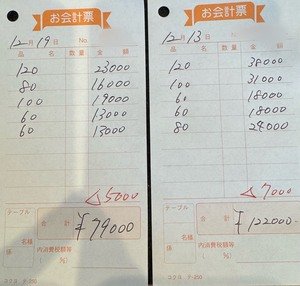 お会計票
12月19日 No.
品名 数量 金額
120 23000
80 16000
100 19000
60 13000
60 13000
△5000
テーブル
合計 ¥79000
名様
係
内消費税額等
( %)
コクヨ テ-250
お会計票
12月13日 No.
品名 数量 金額
120 38000
100 31000
60 18000
60 18000
80 24000
△7000
テーブル
合計 ¥122000
名様
係
内消費税額等
( %)
コクヨ テ-250